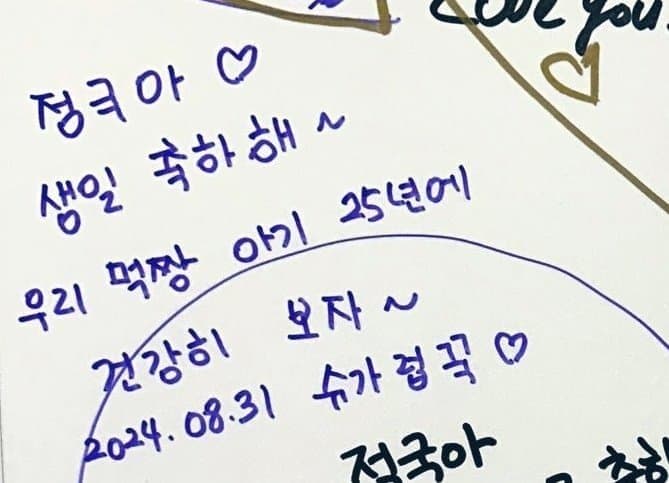 Love you
정국아 ♡
생일 축하해~
우리 먹짱 아기 25년에
건강히 보자~
2024.08.31 슈가럽꾹♡
정국아